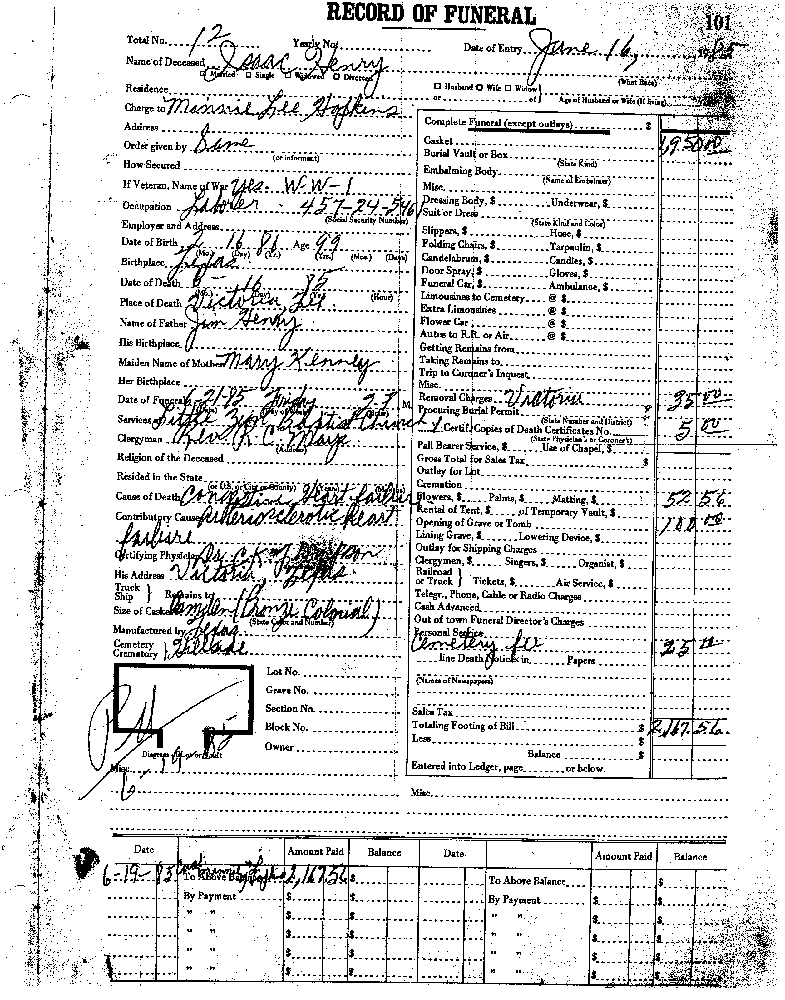 RECORD OF FUNERAL
101
Total No. 12 Yearly No. Date of Entry June 16, 1985
Name of Deceased Isaac Henry
☐ Married ☐ Single ☐ Widowed ☐ Divorced (What Race)
Residence ☐ Husband ☐ Wife ☐ Widow or of Age of Husband or Wife (if living)
Charge to Minnie Lee Hopkins
Address
Order given by Same
(or informant)
How Secured
If Veteran, Name of War Yes. WW-1
Occupation Laborer 457-24-546
(Social Security Number)
Employer and Address
Date of Birth 2 16 86 Age 99
(Mo.) (Day) (Yr.) (Yrs.) (Mos.) (Days)
Birthplace Texas
Date of Death 6 16 85
(Hour)
Place of Death Victoria
Name of Father Jim Henry
His Birthplace
Maiden Name of Mother Mary Kenney
Her Birthplace
Date of Funeral M.
Services Little Zion Baptist Church
Clergyman Rev. R. C. Mays
(Address)
Religion of the Deceased
Resided in the State
(or U.S. or City or County)
Cause of Death Congestive heart failure
Contributory Cause Artheriosclerotic heart
failure
Certifying Physician Dr. C. K.
His Address Victoria, Texas
Truck Ship } Remains to
Size of Casket Camden (Bronze Colonial)
(State Color and Number)
Manufactured by Texas
Cemetery Crematory } Hillside
Lot No.
Grave No.
Section No.
Block No.
Owner
Diagram of Lot or Vault
Misc.
Complete Funeral (except outlays) $
Casket 1,950 00
Burial Vault or Box
(State Kind)
Embalming Body
(Name of Embalmer)
Misc.
Dressing Body, $ Underwear, $
Suit or Dress
(State Kind and Color)
Slippers, $ Hose, $
Folding Chairs, $ Tarpaulin, $
Candelabrum, $ Candles, $
Door Spray, $ Gloves, $
Funeral Car, $ Ambulance, $
Limousines to Cemetery @ $
Extra Limousines @ $
Flower Car @ $
Autos to R.R. or Air @ $
Getting Remains from
Taking Remains to
Trip to Coroner's Inquest
Misc.
Removal Charges Victoria 35 00
Procuring Burial Permit
(State Number and District)
1 Certif. Copies of Death Certificates No. 5 00
(State Physician's or Coroner's)
Pall Bearer Service, $ Use of Chapel, $
Gross Total for Sales Tax $
Outlay for Lot
Cremation
Flowers, $ Palms, $ Matting, $ 52 56
Rental of Tent, $ of Temporary Vault, $
Opening of Grave or Tomb 100 00
Lining Grave, $ Lowering Device, $
Outlay for Shipping Charges
Clergymen, $ Singers, $ Organist, $
Railroad or Truck } Tickets, $ Air Service, $
Telegr., Phone, Cable or Radio Charges
Cash Advanced
Out of town Funeral Director's Charges
Personal Service
Cemetery fee 25 00
line Death Notices in Papers
(Names of Newspapers)
Sales Tax
Totaling Footing of Bill $ 2,167.56
Less $
Balance $
Entered into Ledger, page or below.
Misc.
Date Amount Paid Balance Date Amount Paid Balance
6-19-85 To Above Balance $ 2,167.56 $ To Above Balance $
By Payment $ $ By Payment $ $
" " $ $ " " $ $
" " $ $ " " $ $
" " $ $ " " $ $
" " $ $ " " $ $